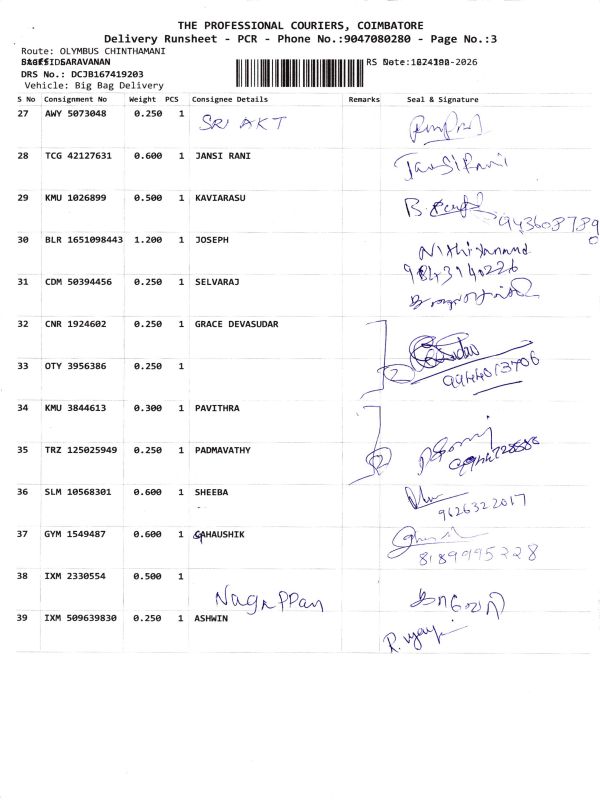 THE PROFESSIONAL COURIERS, COIMBATORE
Delivery Runsheet - PCR - Phone No.:9047080280 - Page No.:3
Route: OLYMBUS CHINTHAMANI
SARAVANAN
DRS No.: DCJB167419203
Vehicle: Big Bag Delivery
S No Consignment No Weight PCS Consignee Details Remarks Seal & Signature
27 AWY 5073048 0.250 1 SRI AKT
28 TCG 42127631 0.600 1 JANSI RANI JansiRani
29 KMU 1026899 0.500 1 KAVIARASU B
30 BLR 1651098443 1.200 1 JOSEPH Nithiyanand
9843140226
31 CDM 50394456 0.250 1 SELVARAJ
32 CNR 1924602 0.250 1 GRACE DEVASUDAR
33 OTY 3956386 0.250 1 9944013706
34 KMU 3844613 0.300 1 PAVITHRA
35 TRZ 125025949 0.250 1 PADMAVATHY
36 SLM 10568301 0.600 1 SHEEBA 9626322017
37 GYM 1549487 0.600 1 GAHAUSHIK 8189995228
38 IXM 2330554 0.500 1 Nagappan
39 IXM 509639830 0.250 1 ASHWIN